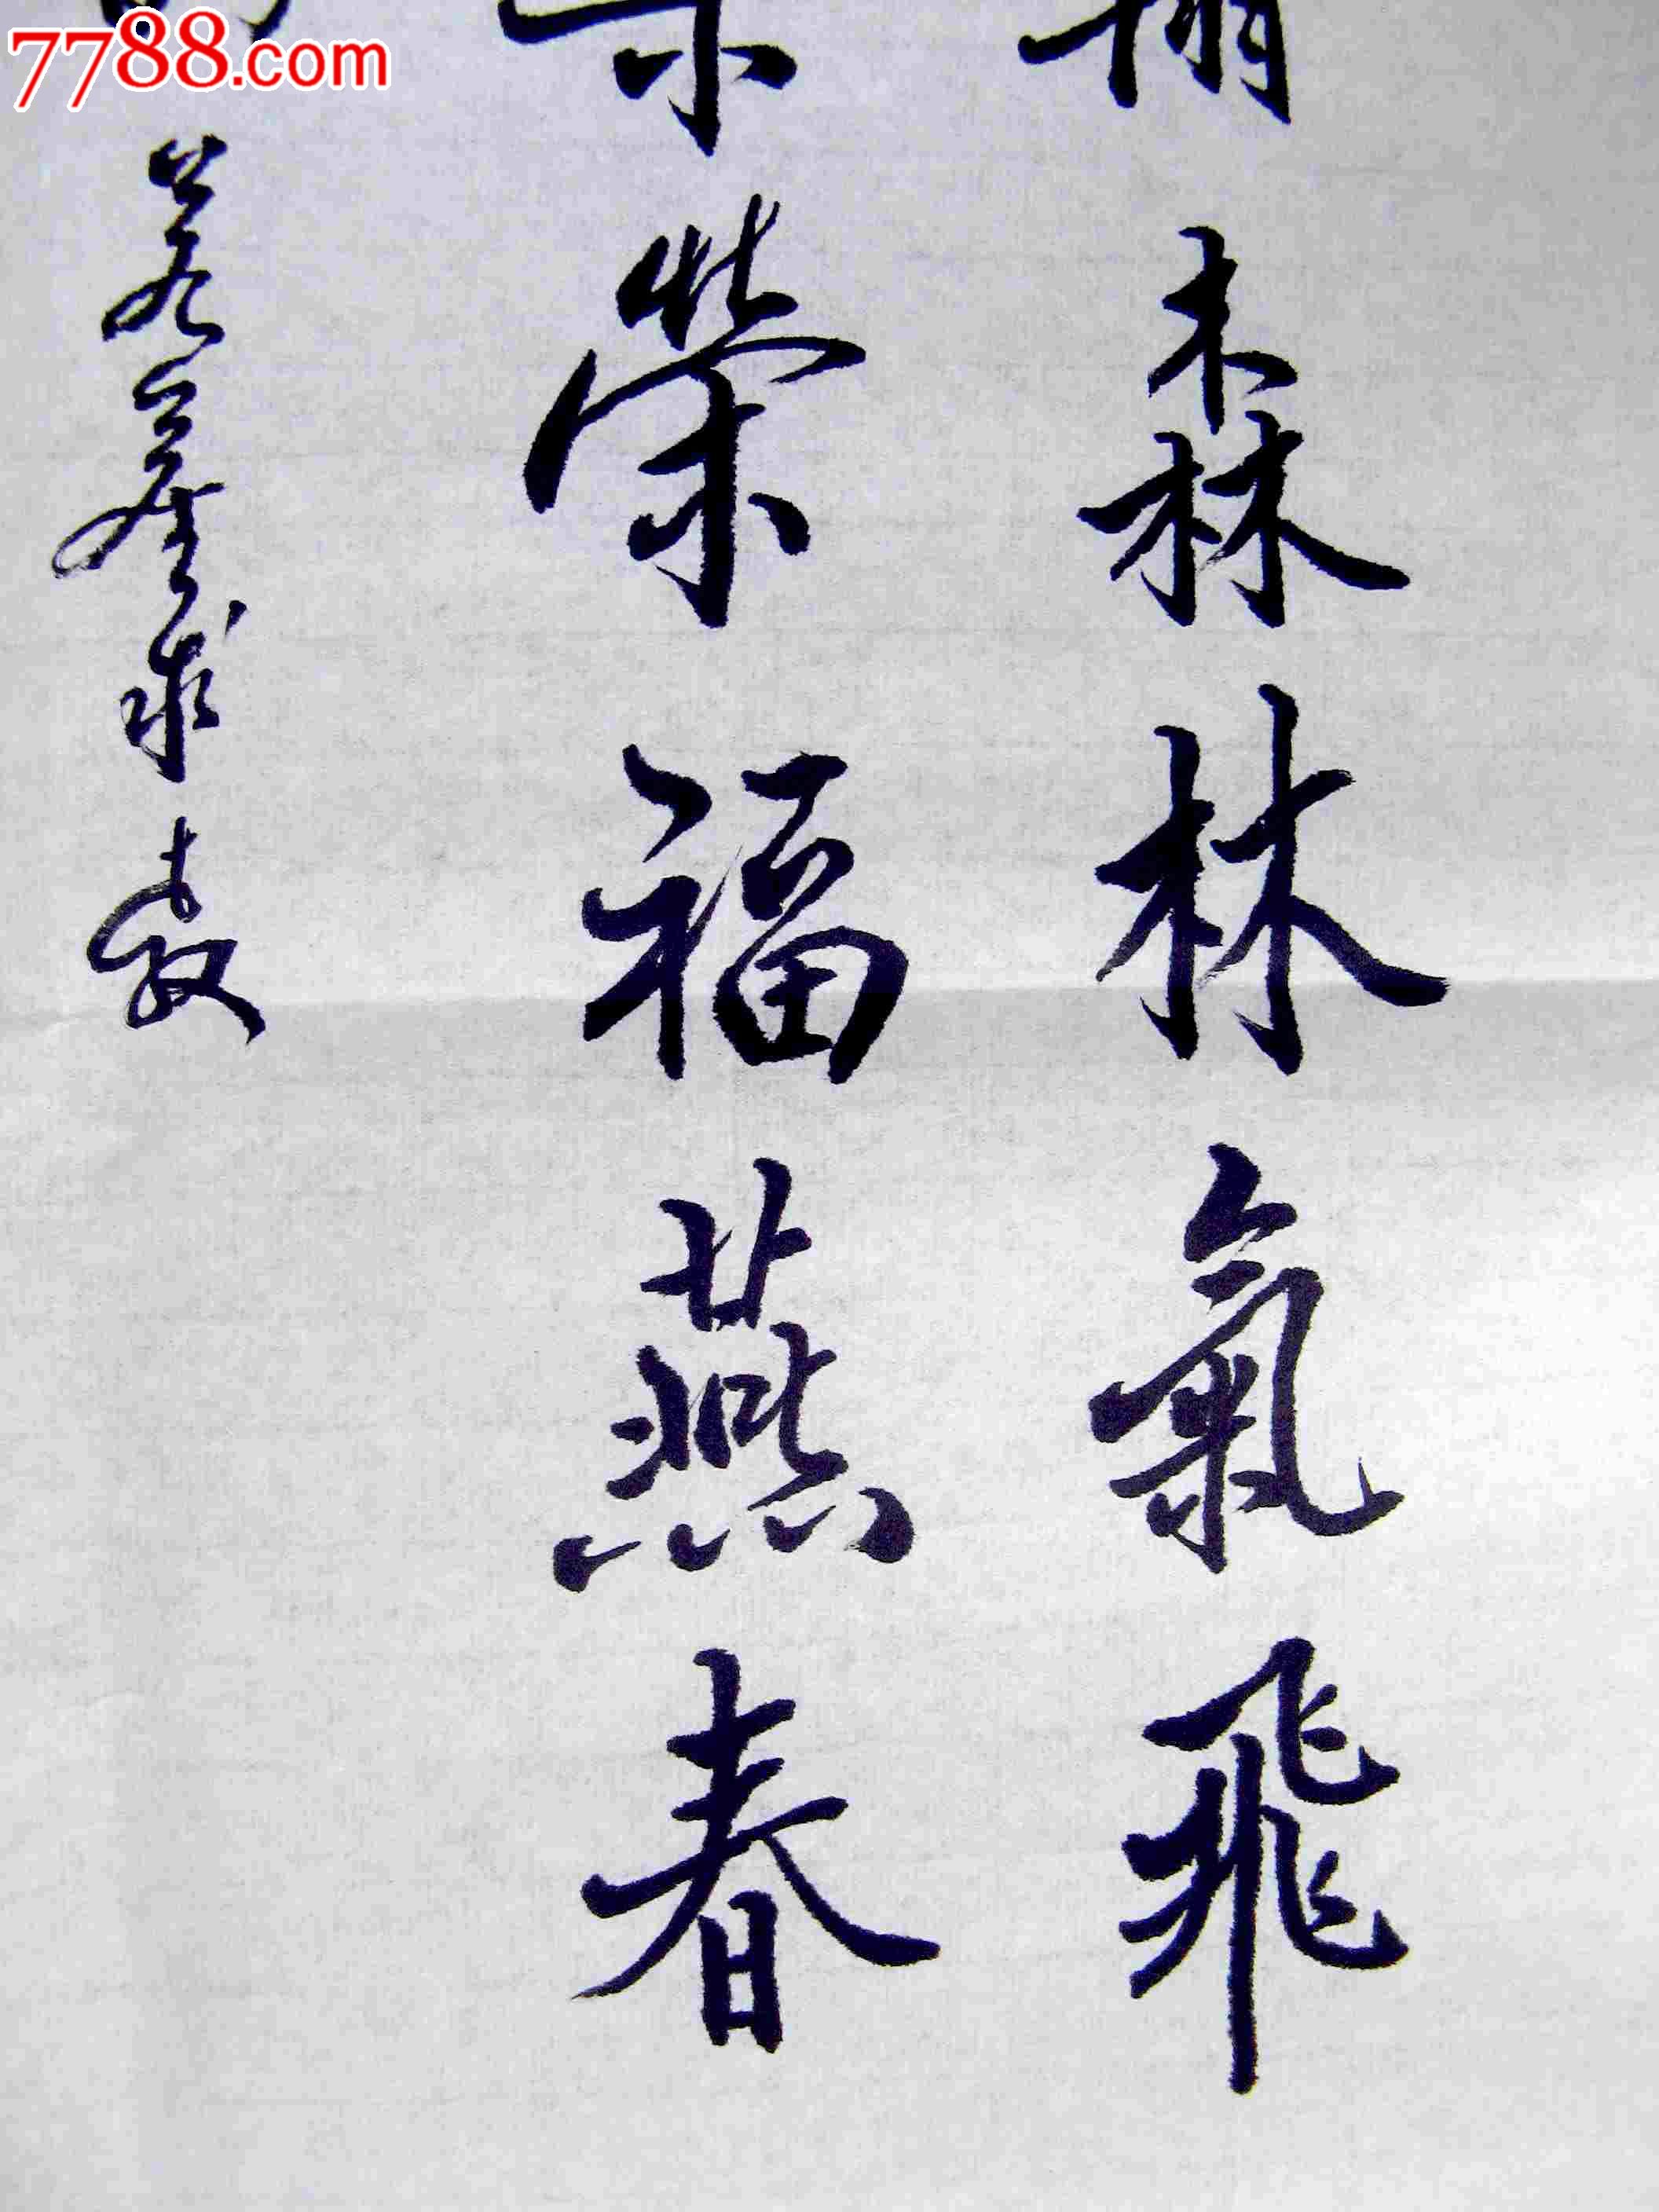 7788.com
森林氣飛
榮福燕春
求教